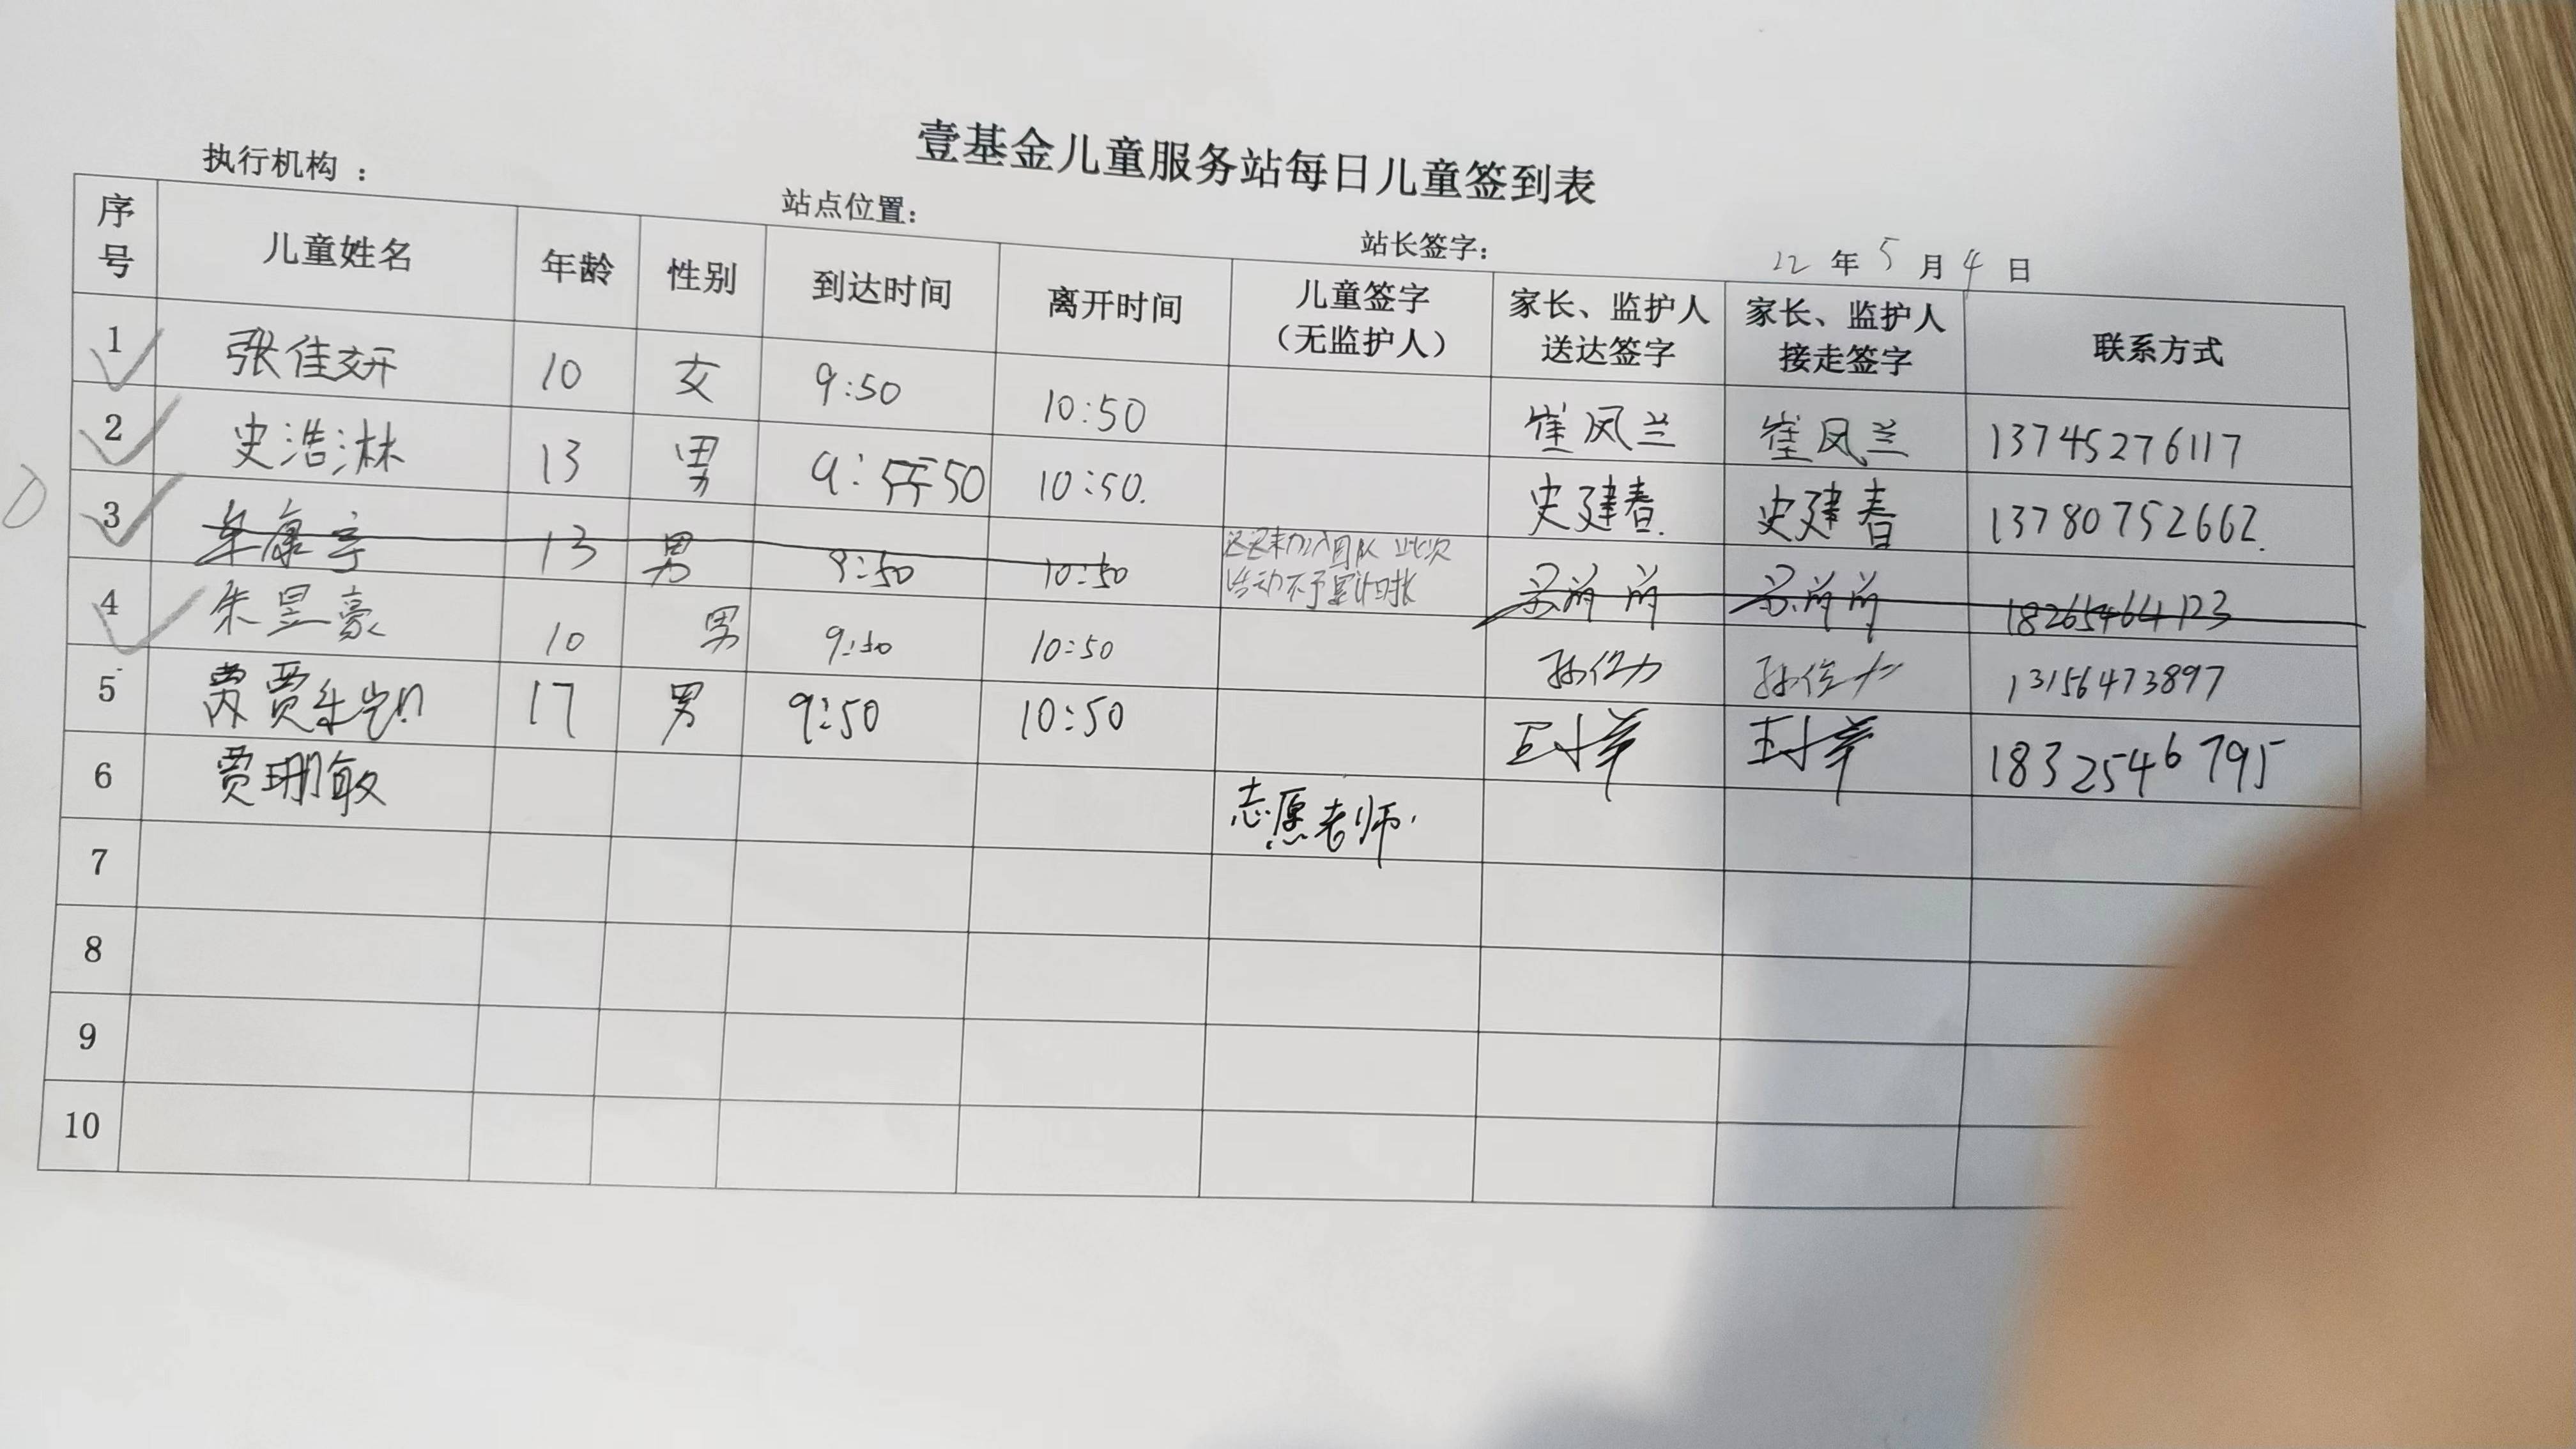 壹基金儿童服务站每日儿童签到表
执行机构：
站点位置：
站长签字：
22 年 5 月 4 日
序号 儿童姓名 年龄 性别 到达时间 离开时间 儿童签字（无监护人） 家长、监护人送达签字 家长、监护人接走签字 联系方式
1 张佳妍 10 女 9:50 10:50 崔凤兰 崔凤兰 13745276117
2 史浩淋 13 男 9:50 10:50. 史建春. 史建春 13780752662.
3 康宇 13 男 9:50 10:50 未加入团队 此次活动不予累计时长 18265464123
4 朱昱豪 10 男 9:50 10:50 孙俊 孙俊 13156473897
5 贾 17 男 9:50 10:50 18325546795
6 贾珊敏 志愿老师.
7
8
9
10